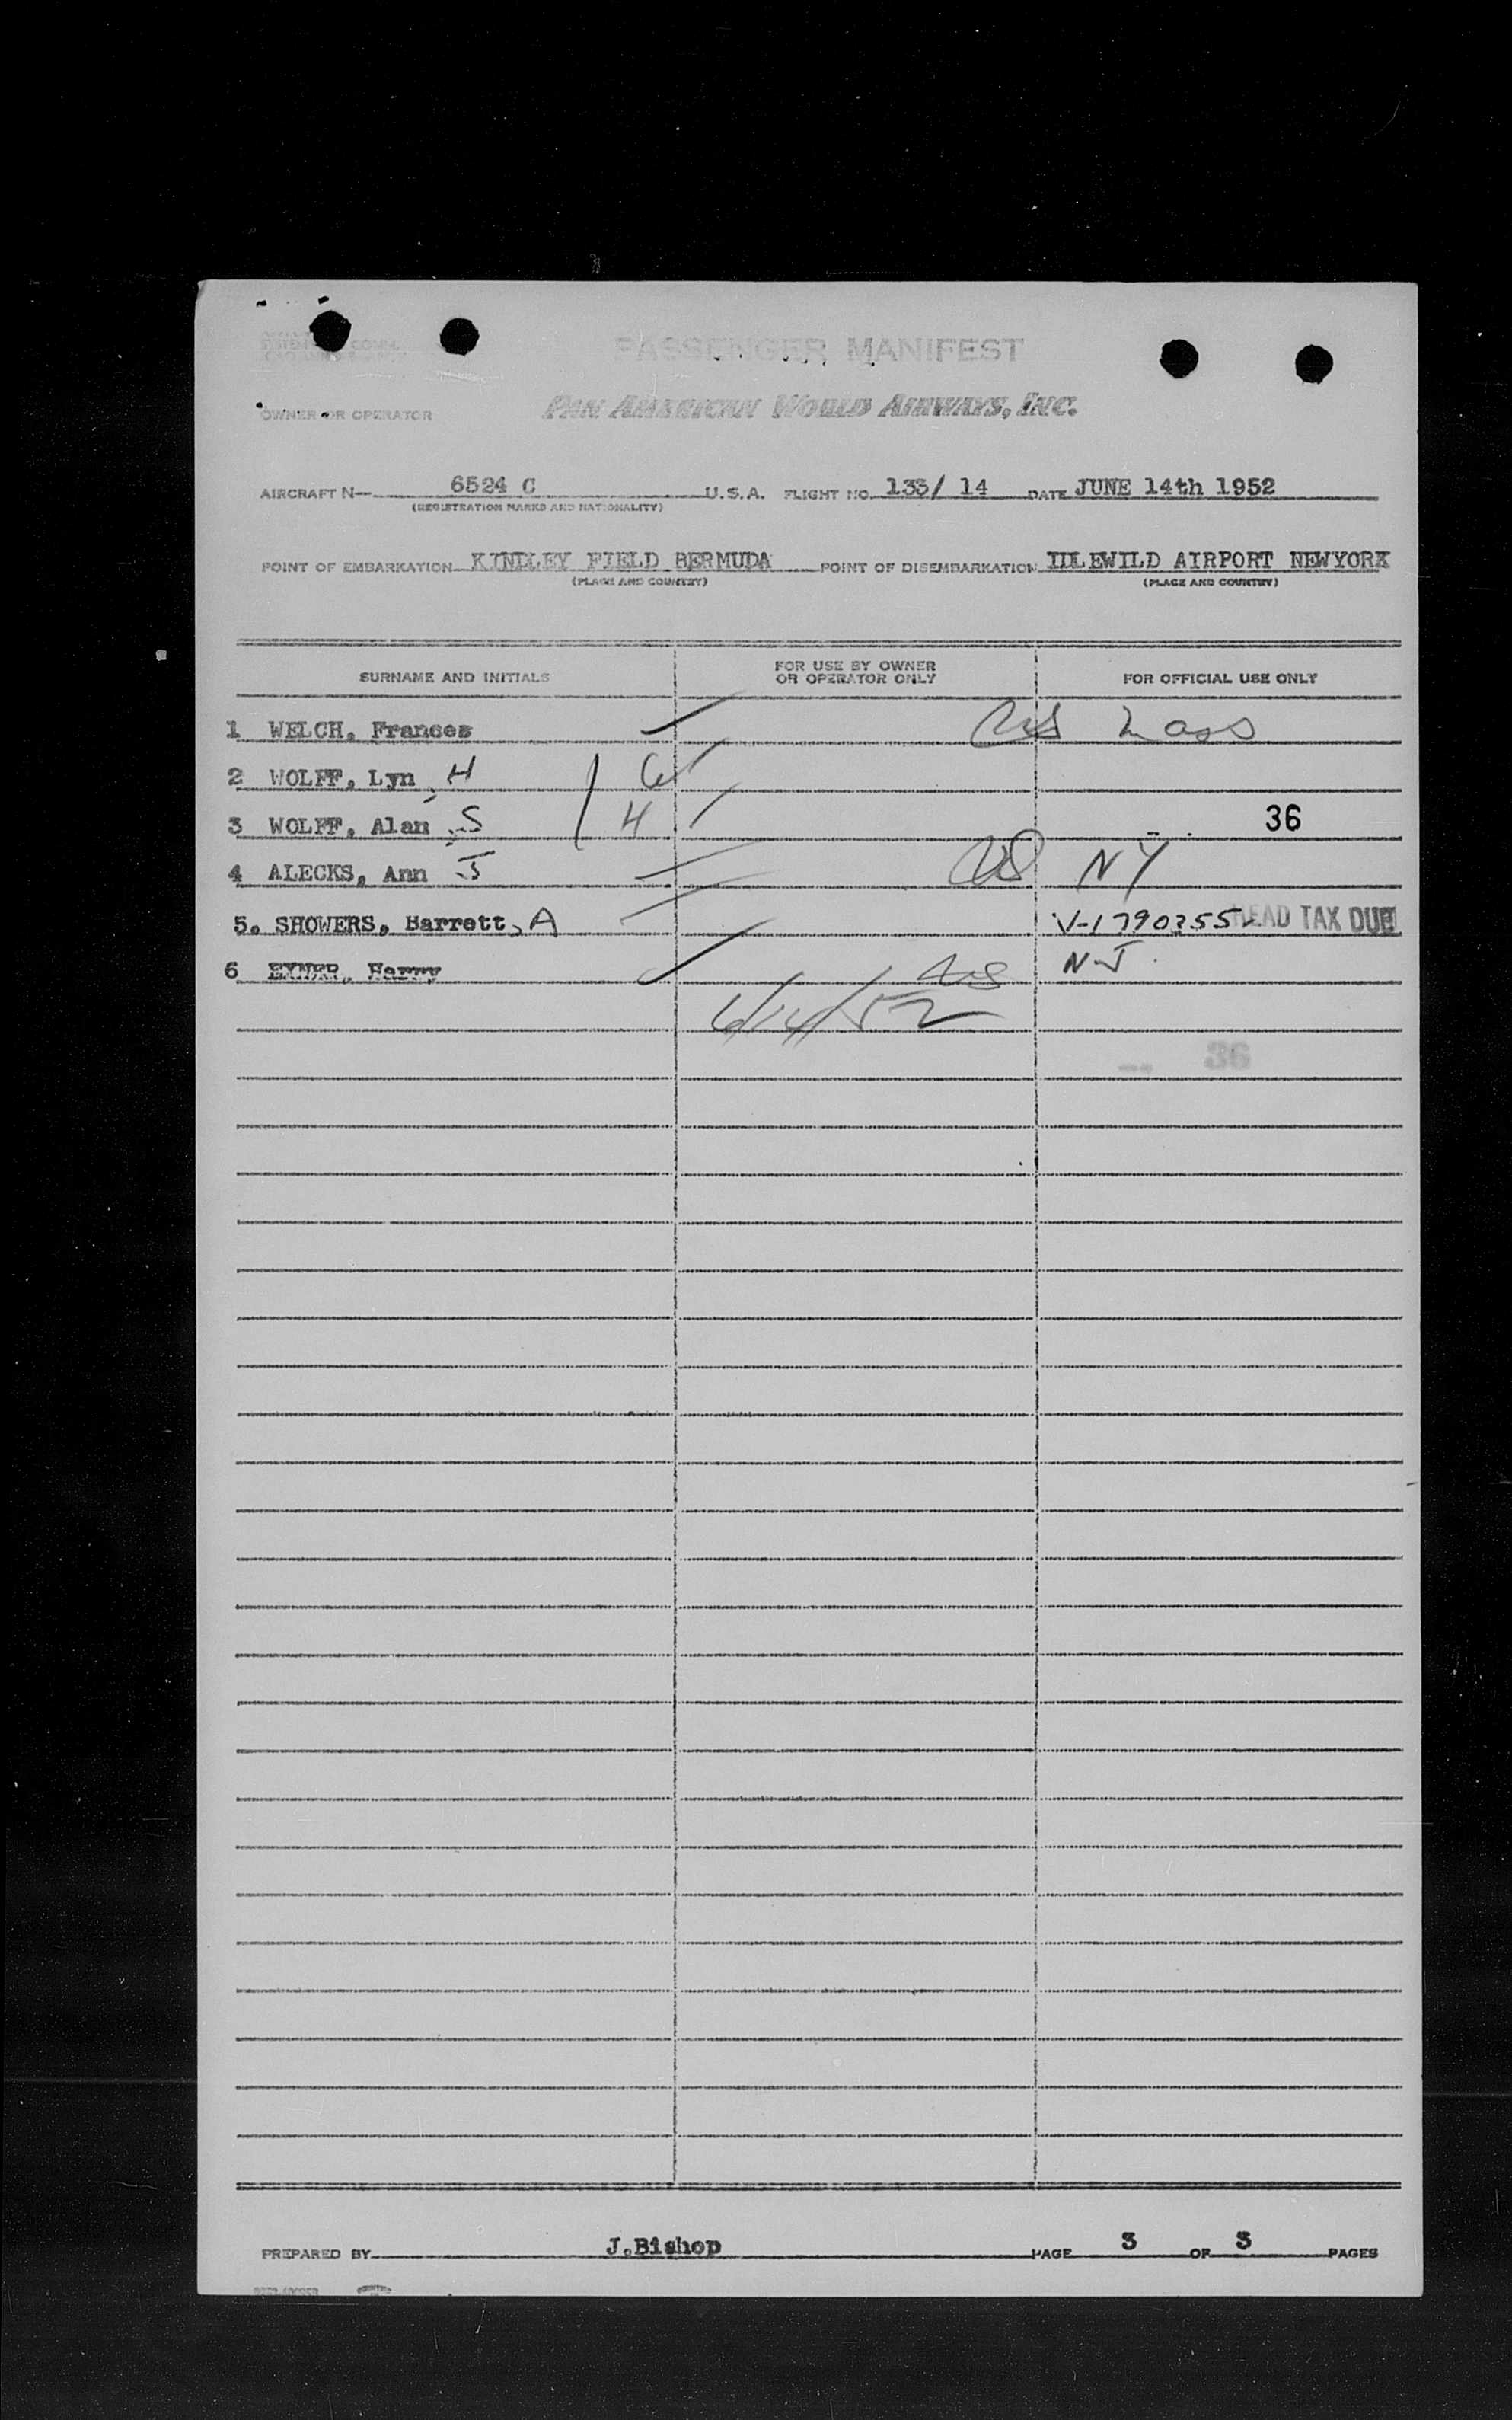 PASSENGER MANIFEST
OWNER OR OPERATOR PAN AMERICAN WORLD AIRWAYS, INC.
AIRCRAFT N— 6524 C U.S.A. FLIGHT NO. 133/ 14 DATE JUNE 14th 1952
(REGISTRATION MARKS AND NATIONALITY)
POINT OF EMBARKATION KINDLEY FIELD BERMUDA POINT OF DISEMBARKATION IDLEWILD AIRPORT NEWYORK
(PLACE AND COUNTRY) (PLACE AND COUNTRY)
SURNAME AND INITIALS FOR USE BY OWNER OR OPERATOR ONLY FOR OFFICIAL USE ONLY
1 WELCH, Frances US Mass
2 WOLFF, Lyn H 6
3 WOLFF, Alan S 4 36
4 ALECKS, Ann J US NY
5. SHOWERS, Barrett, A HEAD TAX DUE
6 Harry US N-J
6/14/52
36
PREPARED BY J.Bishop PAGE 3 OF 3 PAGES